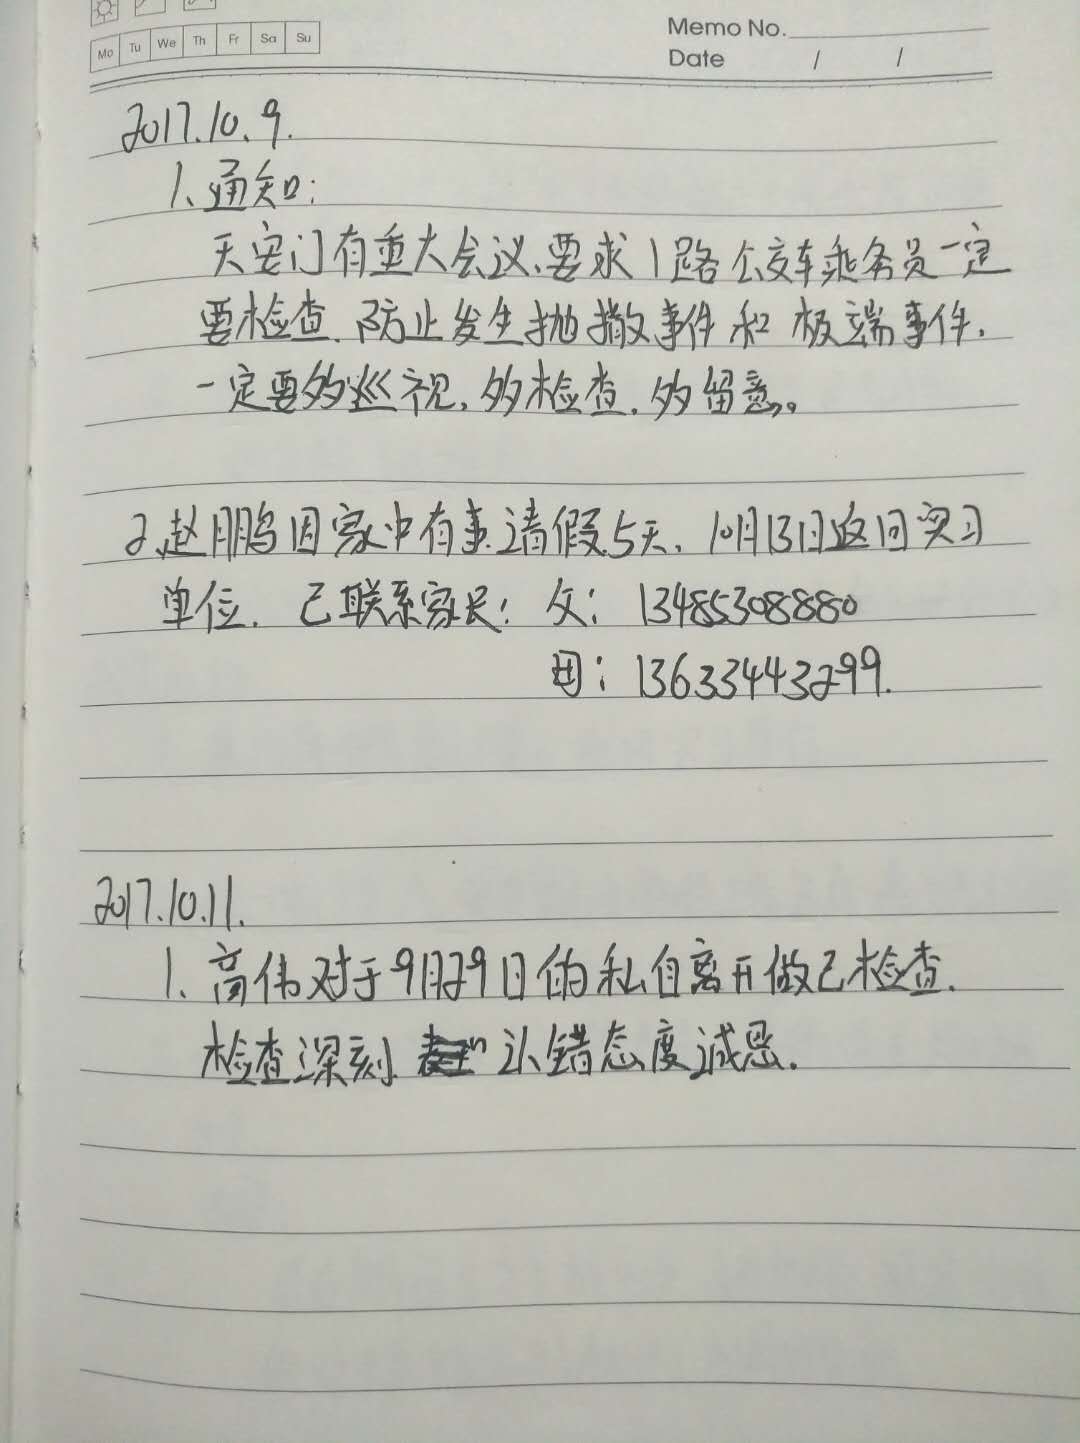 Mo Tu We Th Fr Sa Su
Memo No.
Date / /
2017.10.9.
1、通知：
天安门有重大会议、要求1路公交车乘务员一定
要检查.防止发生抛撒事件和极端事件.
一定要多巡视,多检查,多留意。
2、赵鹏因家中有事.请假5天,10月13日返回实习
单位. 已联系家长: 父: 13485308880
母: 13633443299.
2017.10.11.
1、高伟对于9月29日的私自离开做已检查.
检查深刻. 认错态度诚恳.